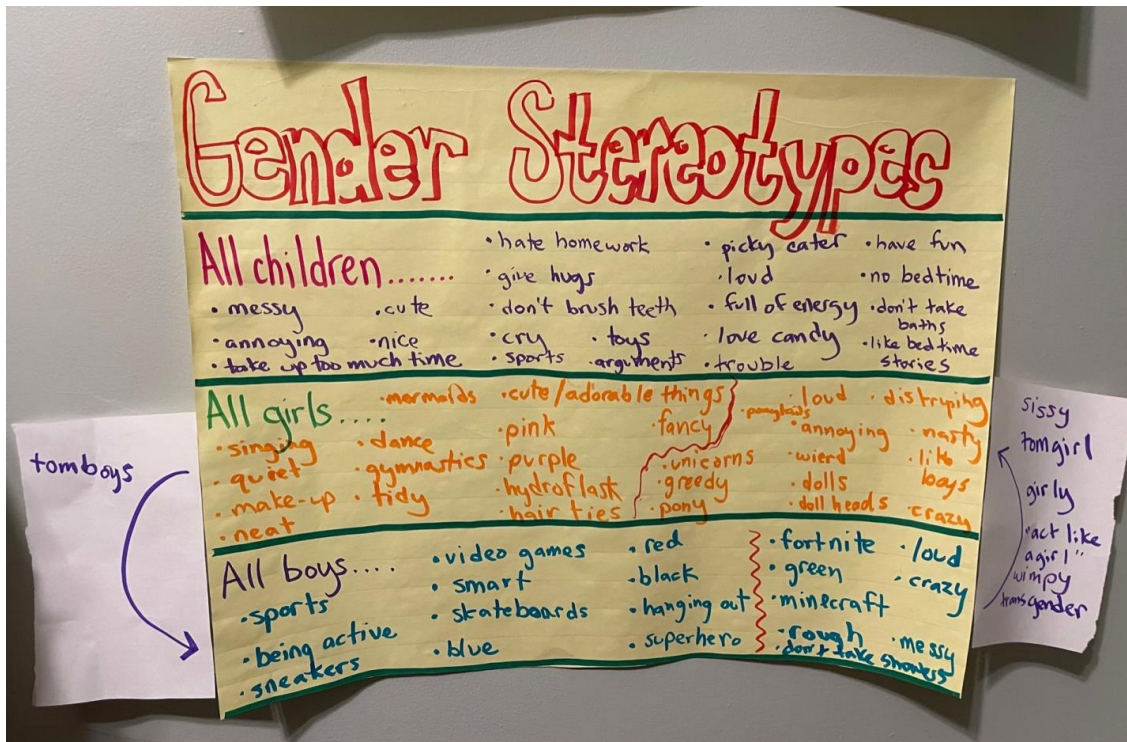 Gender Stereotypes
All children.......
• messy
• cute
• annoying
• nice
• take up too much time
• hate homework
• give hugs
• don't brush teeth
• cry
• toys
• sports
• arguments
• picky eater
• loud
• full of energy
• love candy
• trouble
• have fun
• no bedtime
• don't take
baths
• like bedtime
stories
All girls....
• singing
• quiet
• make-up
• neat
• mermaids
• dance
• gymnastics
• tidy
• cute/adorable things
• pink
• purple
• hydroflask
• hair ties
• fancy
• unicorns
• greedy
• pony
• ponytails
• loud
• annoying
• wierd
• dolls
• doll heads
• distryping
• nasty
• like
boys
• crazy
All boys....
• sports
• being active
• sneakers
• video games
• smart
• skateboards
• blue
• red
• black
• hanging out
• superhero
• fortnite
• green
• minecraft
• rough
• don't take showers
• loud
• crazy
• messy
tomboys
sissy
tomgirl
girly
"act like
a girl"
wimpy
transgender